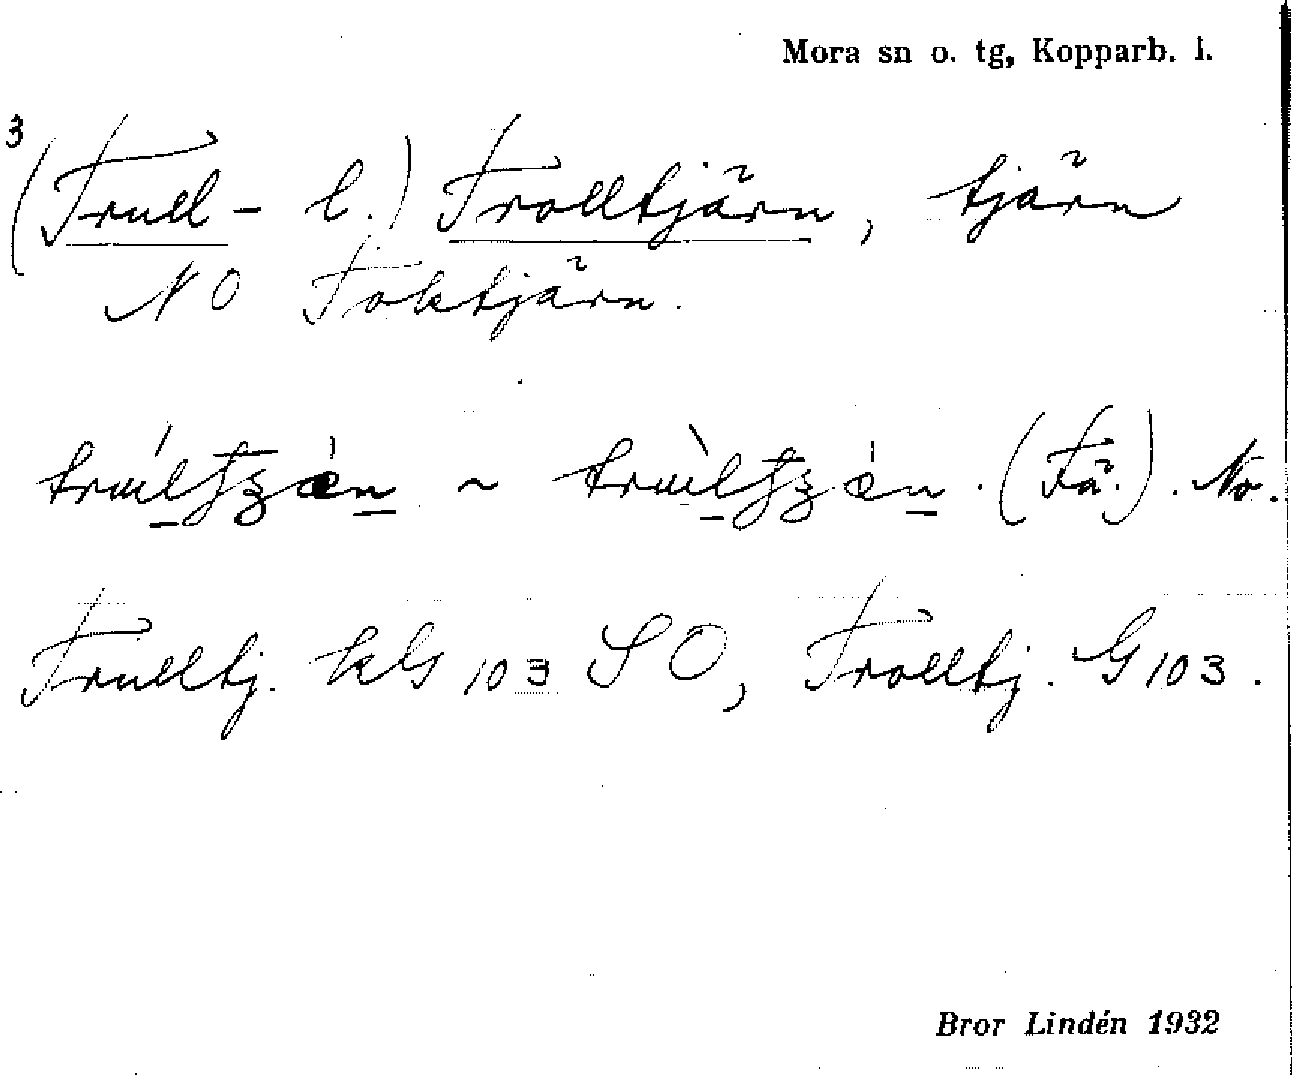 Mora sn o. tg, Kopparb. l.
3
(Trull- l.) Trolltjärn, tjärn
NO Toktjärn.
(Fä.). No.
Trulltj. kls 103 SO, Trolltj. G 103.
Bror Lindén 1932